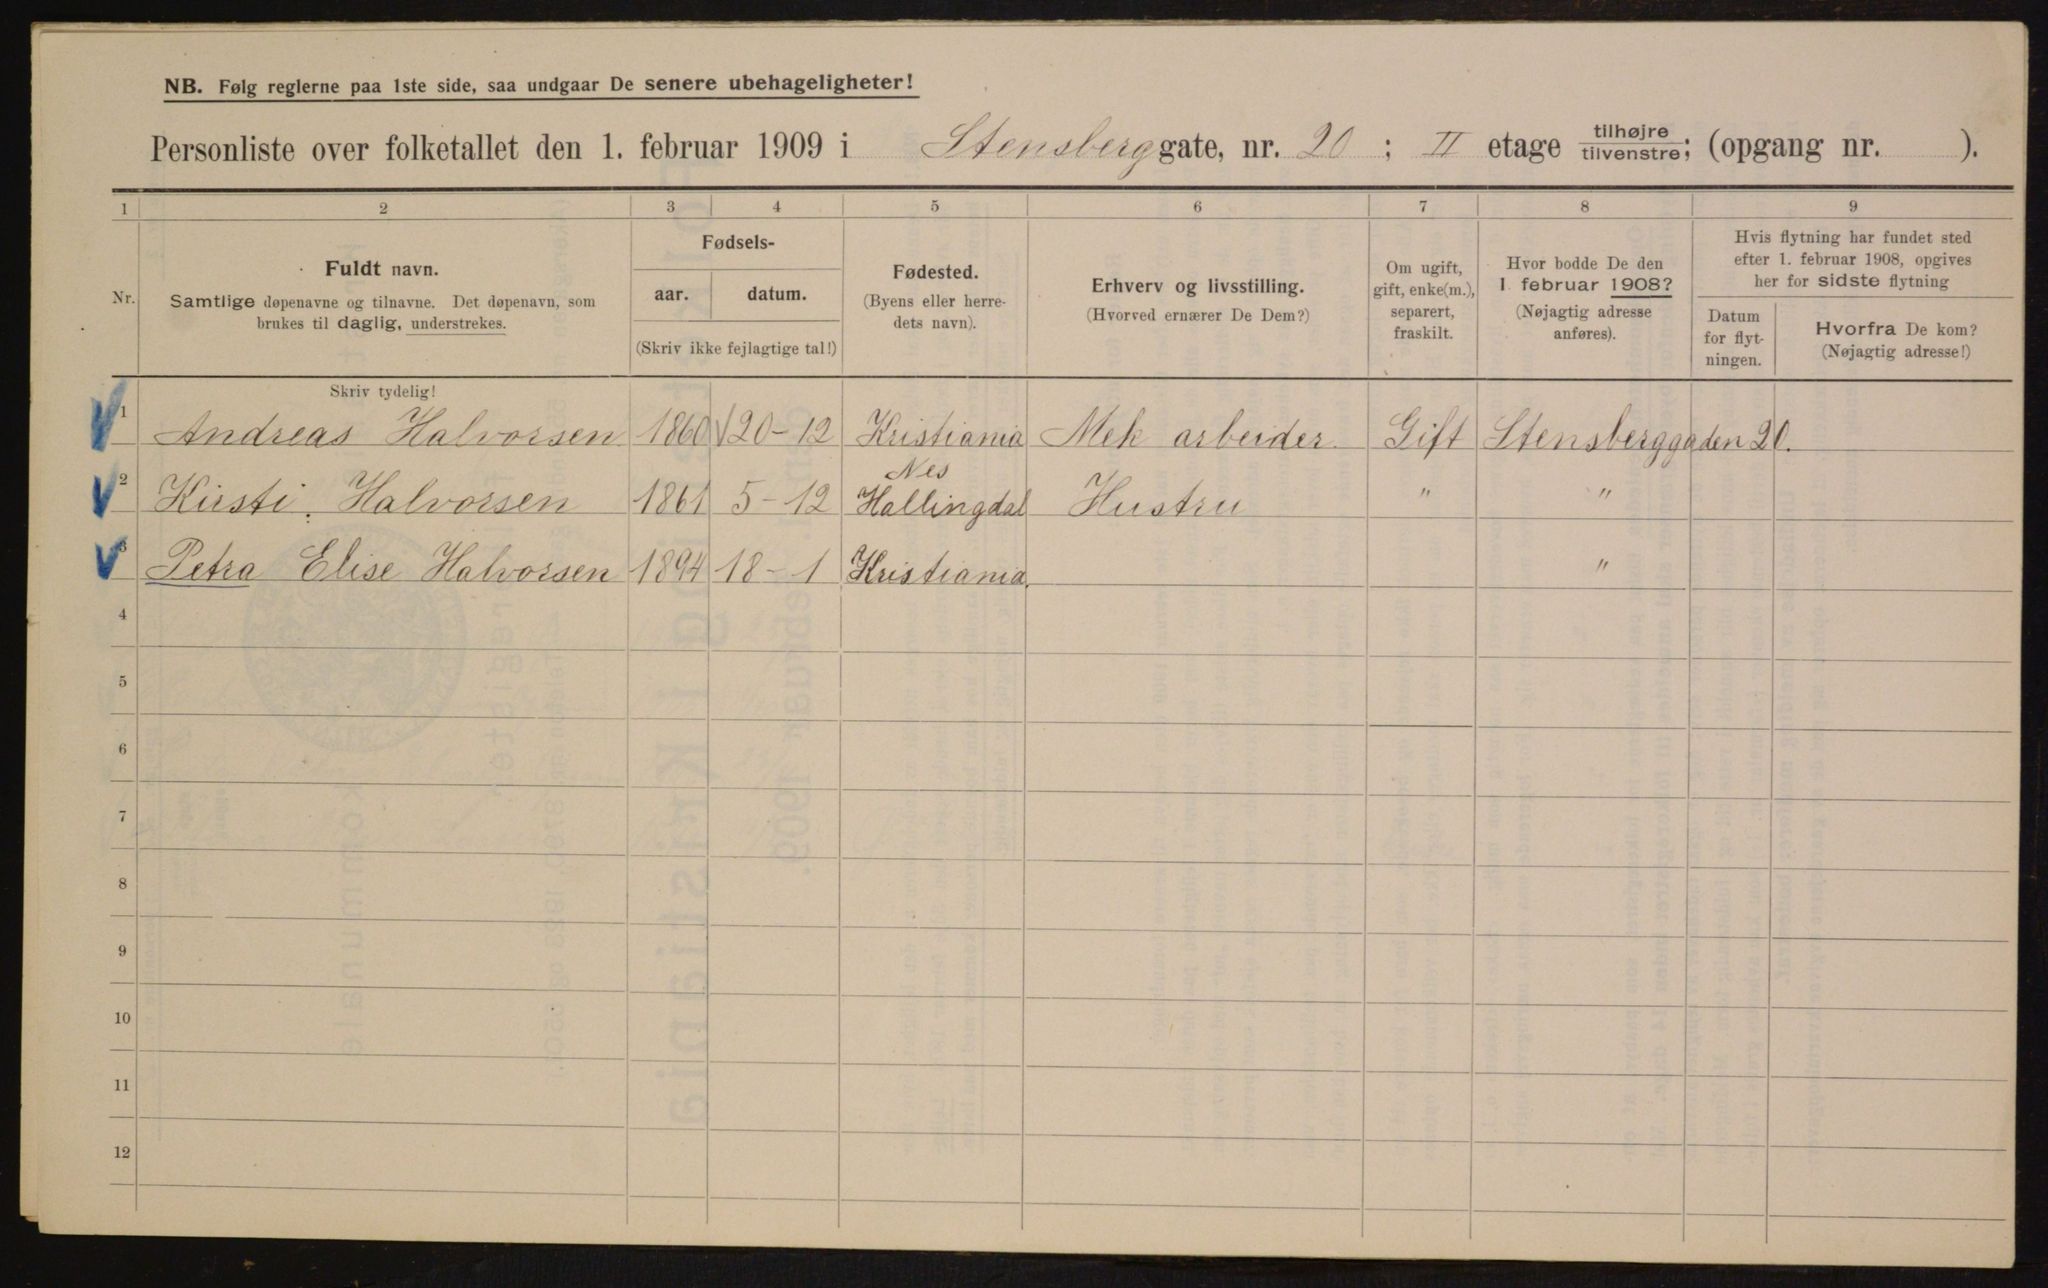 NB. Følg reglerne paa 1ste side, saa undgaar De senere ubehageligheter!
Personliste over folketallet den 1. februar 1909 i Stensberggate, nr. 20 ; II etage tilhøjre/tilvenstre; (opgang nr. ).
1 2 3 4 5 6 7 8 9
Nr.
Fuldt navn.
Samtlige døpenavne og tilnavne. Det døpenavn, som
brukes til daglig, understrekes.
Skriv tydelig!
Fødsels-
aar. datum.
(Skriv ikke fejlagtige tal!)
Fødested.
(Byens eller herre-
dets navn).
Erhverv og livsstilling.
(Hvorved ernærer De Dem?)
Om ugift,
gift, enke(m.),
separert,
fraskilt.
Hvor bodde De den
1 februar 1908?
(Nøjagtig adresse
anføres).
Hvis flytning har fundet sted
efter 1. februar 1908, opgives
her for sidste flytning
Datum
for flyt-
ningen.
Hvorfra De kom?
(Nøjagtig adresse!)
1 Andreas Halvorsen 1860 20-12 Kristiania Mek arbeider. Gift Stensberggaden 20.
Nes
2 Kirsti. Halvorsen 1861 5-12 Hallingdal Hustru " "
3 Petra Elise Halvorsen 1894 18-1 Kristiania. "
4
5
6
7
8
9
10
11
12